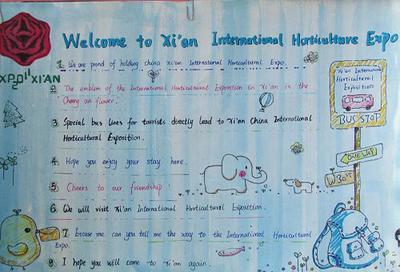 Welcome to Xi'an International Horticulture Expo
XI'AN
1. We are proud of holding china xi'an International Horticultural Expo.
2. The emblem of the International Horticultural Exposition in Xi'an is the
Chang an flower.
3. Special bus lines for tourists directly lead to Xi'an China International
Horticultural Exposition.
4. Hope you enjoy your stay here.
5. Cheers to our friendship
6. We will visit Xi'an International Horticultural Exposition.
7. Excuse me can you tell me the way to the International Horticultural
Expo.
8. I hope you will come to Xi'an again.
Xi'an International
Horticultural
Exposition
BUS STOP
ONE WAY